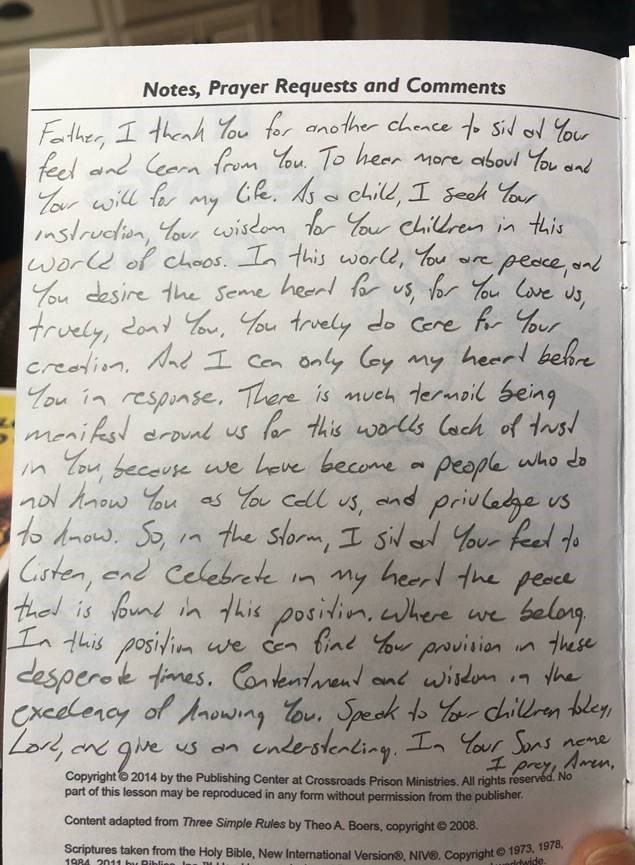 Notes, Prayer Requests and Comments
Father, I thank You for another chance to sit at Your
feet and learn from You. To hear more about You and
Your will for my life. As a child, I seek Your
instruction, Your wisdom for Your children in this
world of chaos. In this world, You are peace, and
You desire the same heart for us, for You love us,
truely, dont You. You truely do care for Your
creation. And I can only lay my heart before
You in response. There is much termoil being
manifest around us for this worlds lack of trust
in You, because we have become a people who do
not know You as You call us, and priviledge us
to know. So, in the storm, I sit at Your feet to
listen, and celebrate in my heart the peace
that is found in this position. Where we belong.
In this position we can find Your provision in these
desperate times. Contentment and wisdom in the
excelency of knowing You. Speak to Your children today,
Lord, and give us an understanding. In Your Sons name
I pray, Amen.
Copyright © 2014 by the Publishing Center at Crossroads Prison Ministries. All rights reserved. No
part of this lesson may be reproduced in any form without permission from the publisher.
Content adapted from Three Simple Rules by Theo A. Boers, copyright © 2008.
Scriptures taken from the Holy Bible, New International Version®, NIV®. Copyright © 1973, 1978,
1984, 2011 by Biblica, Inc.™ worldwide.